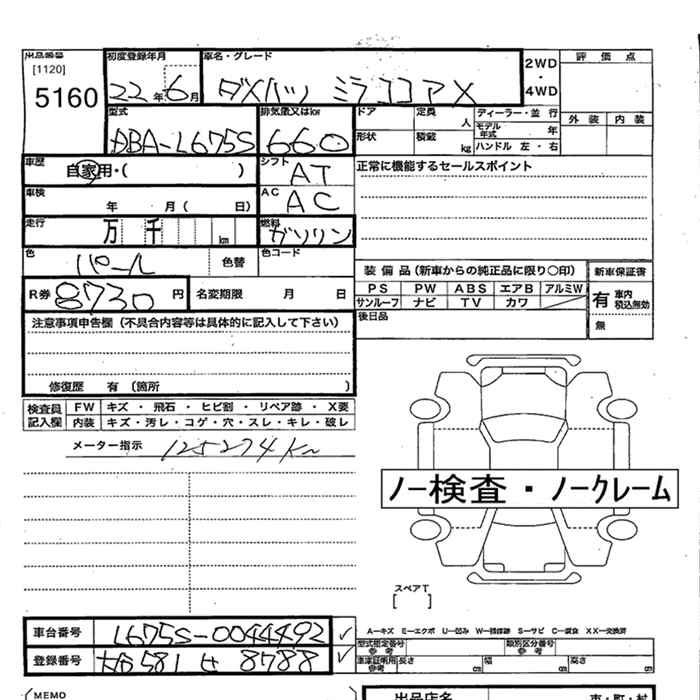 出品番号 初度登録年月 車名・グレード 2WD・4WD 評価点
[1120]
5160 22年6月 ダイハツ ミラココアX
外装 内装
型式 排気量又はkw ドア 定員 人 ディーラー・並行
ABA-L675S 660 形状 積載 kg モデル年式 年
ハンドル 左・右
車歴 自家用・( ) シフト AT 正常に機能するセールスポイント
車検 年 月( 日) AC AC
走行 万 千 km 燃料 ガソリン
色 パール 色替 色コード
装備品(新車からの純正品に限り○印) 新車保証書
R券 8730円 名変期限 月 日 PS PW ABS エアB アルミW 有 車内 税込無効
サンルーフ ナビ TV カワ
注意事項申告欄(不具合内容等は具体的に記入して下さい) 後日品 無
修復歴 有(箇所 )
検査員記入欄 FW キズ・飛石・ヒビ割・リペア跡・X要
内装 キズ・汚レ・コゲ・穴・スレ・キレ・破レ
メーター指示 125274km
ノー検査・ノークレーム
スペアT
[ ]
車台番号 L675S-0044492 ✓ A−キズ E−エクボ U−凹み W−補修跡 S−サビ C−腐食 XX−交換済
型式指定番号 参考 類別区分番号 参考
登録番号 581 8788 ✓ 車庫証明用 参考 長さ cm 幅 cm 高さ cm
MEMO 出品店名 市・町・村